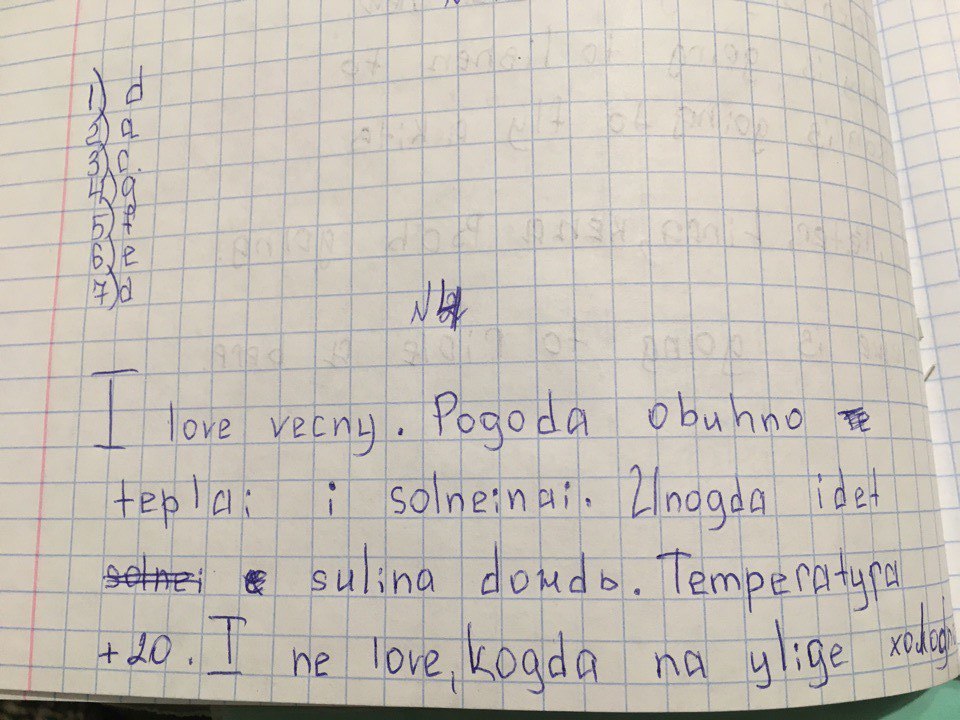 1) d
2) a
3) c.
4) g
5) f
6) e
7) d
N4
I love vecny. Pogoda obuhno
tepla; i solneinai. Unogda idet
solnei sulina domdь. Temperatyra
+20. I ne love, kogda na ylige холодн